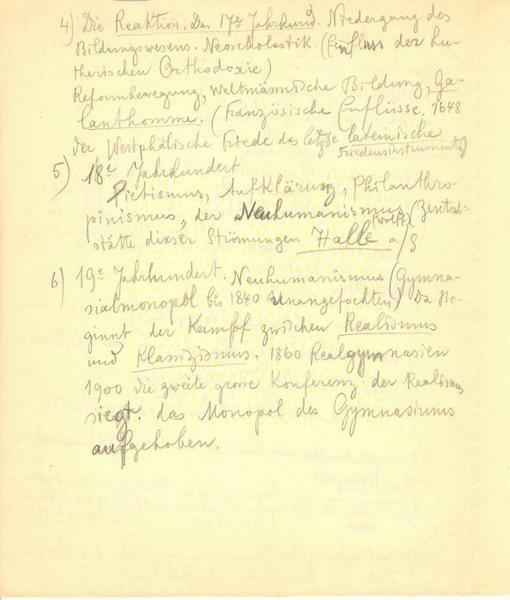 4) Die Reaktion. Das 17te Jahrhund. Niedergang des
Bildungswesens. Neoscholastik. (Einfluss der lu-
therischen Orthodoxie)
Reformbewegung, weltmännische Bildung, Ga-
lanthomme. (Französische Einflüsse, 1648
der Westphälische Friede das letzte lateinische
Friedensinstrument)
5) 18te Jahrhundert
Pietismus, Aufklärung, Philanthro-
pinismus, der Neuhumanismus (Wolff) (Zentral-
stätte dieser Strömungen Halle a/S
6) 19te Jahrhundert. Neuhumanismus (Gymna-
sialmonopol bis 1840 unangefochten) Da Be-
ginnt der Kampf zwischen Realismus
und Klassizismus. 1860 Realgymnasien
1900 die zweite grosse Konferenz. der Realismus
siegt. das Monopol des Gymnasiums
aufgehoben.